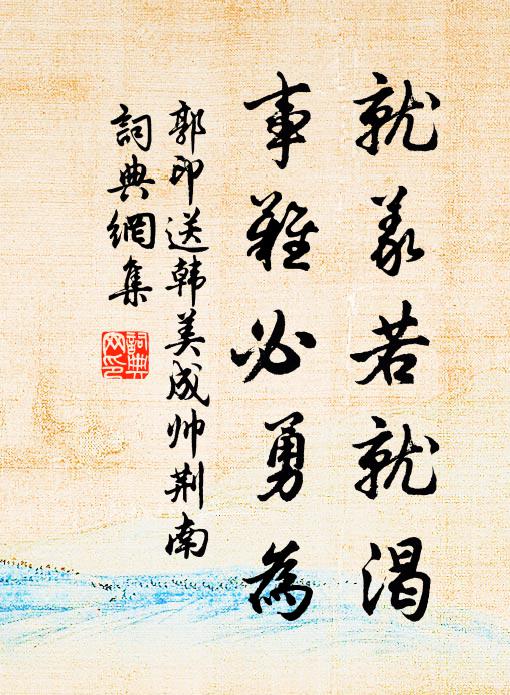 就義若就渴
事難必勇為
郭印送韩美成帅荆南
詞典網集
詞典
网印